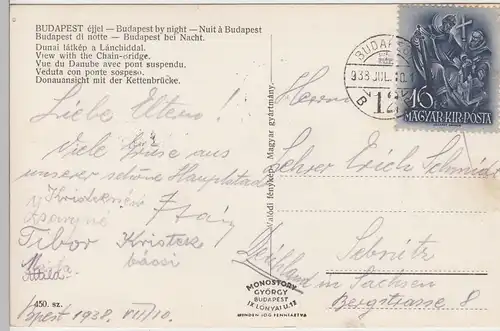 BUDAPEST éjjel — Budapest by night — Nuit à Budapest
Budapest di notte — Budapest bei Nacht.
Dunai látkép a Lánchiddal.
View with the Chain-bridge.
Vue du Danube avec pont suspendu.
Veduta con ponte sospeso.
Donauansicht mit der Kettenbrücke.
Liebe Eltern!
Viele Grüsse aus
unserer schöne Hauptstadt
Tibor
Kristek
bácsi
450. sz.
Bpest 1938. VIII/10.
Valódi fénykép. Magyar gyártmány.
MONOSTORY
GYÖRGY
BUDAPEST
IX. LÓNYAI U. 17
MINDEN JOG FENNTARTVA
BUDAPEST
938 JUL. 10.
B
12
16
MAGYAR·KIR·POSTA
Herrn
Lehrer Erich Schmidt
Sebnitz
in Sachsen
Bergstrasse 8